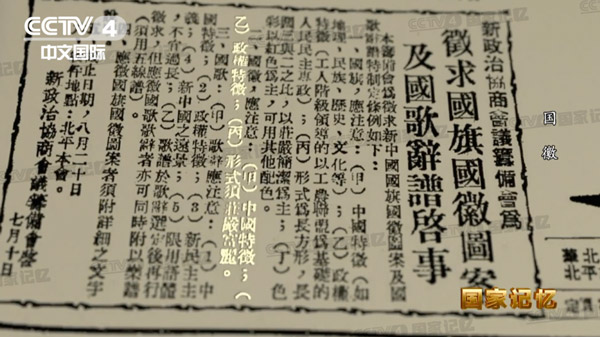 CCTV 4
中文国际
新政治協商會議籌備會爲
徵求國旗國徽圖案
及國歌辭譜啓事
本籌備會爲徵求新中國國旗國徽圖案及國
歌辭譜特制定條例如下：
一、國旗，應注意：（甲）中國特徵（如
地理、民族、歷史、文化等）；（乙）政權
特徵（工人階級領導的以工農聯盟爲基礎的
人民民主專政）；（丙）形式爲長方形，長
闊三與二之比，以莊嚴簡潔爲主；（丁）色
彩以紅色爲主，可用其他配色。
二、國徽，應注意：（甲）中國特徵；（
乙）政權特徵；（丙）形式須莊嚴富麗。
三、國歌：（甲）歌辭應注意：（1）中
國特徵；（2）政權特徵；（3）新民主主
義；（4）新中國之遠景；（5）限用語體
，不宜過長；（乙）歌譜於歌辭選定後再行
徵求，但應徵國歌歌辭者亦可同時附以樂譜
（須用五線譜）。
四、應徵國旗國徽圖案者須附詳細之文字
止日期，八月二十日
地點：北平本會。
新政治協商會議籌備會啓
七月十日
国徽
国家记忆